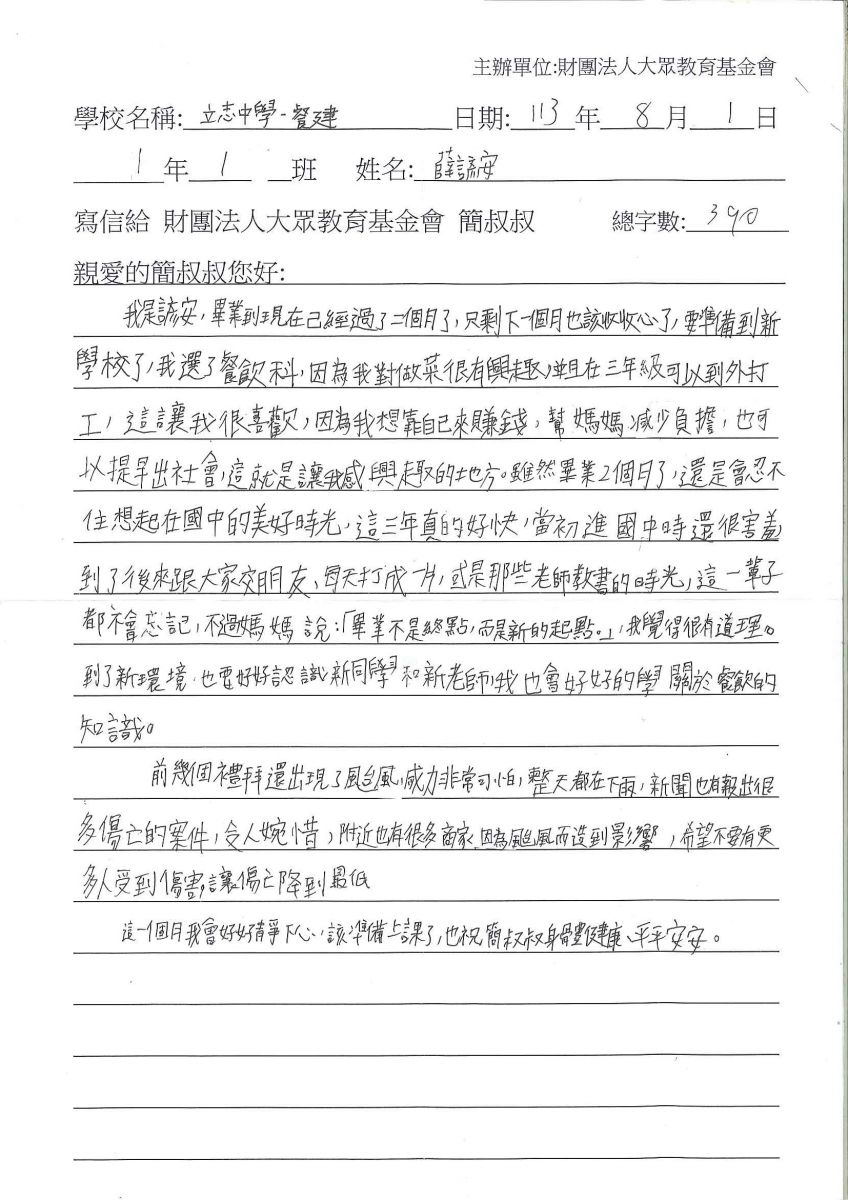 主辦單位:財團法人大眾教育基金會
學校名稱: 立志中學-餐建 日期: 113 年 8 月 1 日
1 年 1 班 姓名: 薛諺安
寫信給 財團法人大眾教育基金會 簡叔叔 總字數: 390
親愛的簡叔叔您好:
我是諺安,畢業到現在已經過了二個月了,只剩下一個月也該收收心了,要準備到新
學校了,我選了餐飲科,因為我對做菜很有興趣,並且在三年級可以到外打
工,這讓我很喜歡,因為我想靠自己來賺錢,幫媽媽減少負擔,也可
以提早出社會,這就是讓我感興趣的地方。雖然畢業2個月了,還是會忍不
住想起在國中的美好時光,這三年真的好快,當初進國中時還很害羞
到了後來跟大家交朋友、每天打成一片,或是那些老師教書的時光,這一輩子
都不會忘記,不過媽媽說:「畢業不是終點,而是新的起點。」,我覺得很有道理。
到了新環境,也要好好認識新同學和新老師,我也會好好的學關於餐飲的
知識。
前幾個禮拜還出現了颱風,威力非常可怕,整天都在下雨,新聞也有報出很
多傷亡的案件,令人婉惜,附近也有很多商家因為颱風而造到影響,希望不要有更
多人受到傷害,讓傷亡降到最低
這一個月我會好好靜下心,該準備上課了,也祝簡叔叔身體健康、平平安安。